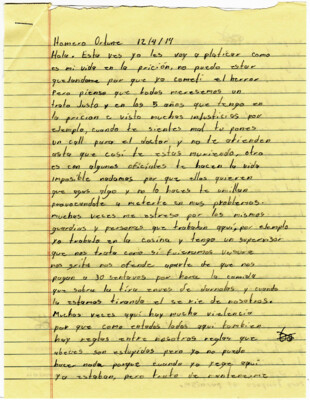 Homero Ortune 12/4/14
Hola. Esta ves yo les voy a platicar como
es mi vida en la pricion, no puedo estar
quejandome por que yo cometi el herror
Pero pienso que todos meresemos un
trato Justo y en los 5 años que tengo en
la pricion e visto muchos injusticias por
ejemplo, cuando te sientes mal tu pones
un call para el doctor y no te atienden
asta que casi te estas muriendo, otro
es em algunos oficiales te hacen la vida
imposible nadamas por que ellos quieren
que agas algo y no lo haces te
provocandote a meterte en mas problemas.
muchas veces me estreso por los mismos
guardias y personas que trabajan aqui, por ejemplo
yo trabajo en la cosina y tengo un supervisor
que nos trata como si fueramos
nos grita nos ofende aparte de que nos
pagan a 30 sentavos por hora la comida
que sobra la tira enves de darnosla y cuando
la estamos tirando el se rie de nosotros.
Muchas veces aqui hay mucha violencia
por que como entodos lados aqui tambien
hay reglas entre nosotros reglas que
aveces son estupidas pero yo no puedo
hacer nada porque cuando yo llege aqui
Ya estaban, pero trato de mantenerme